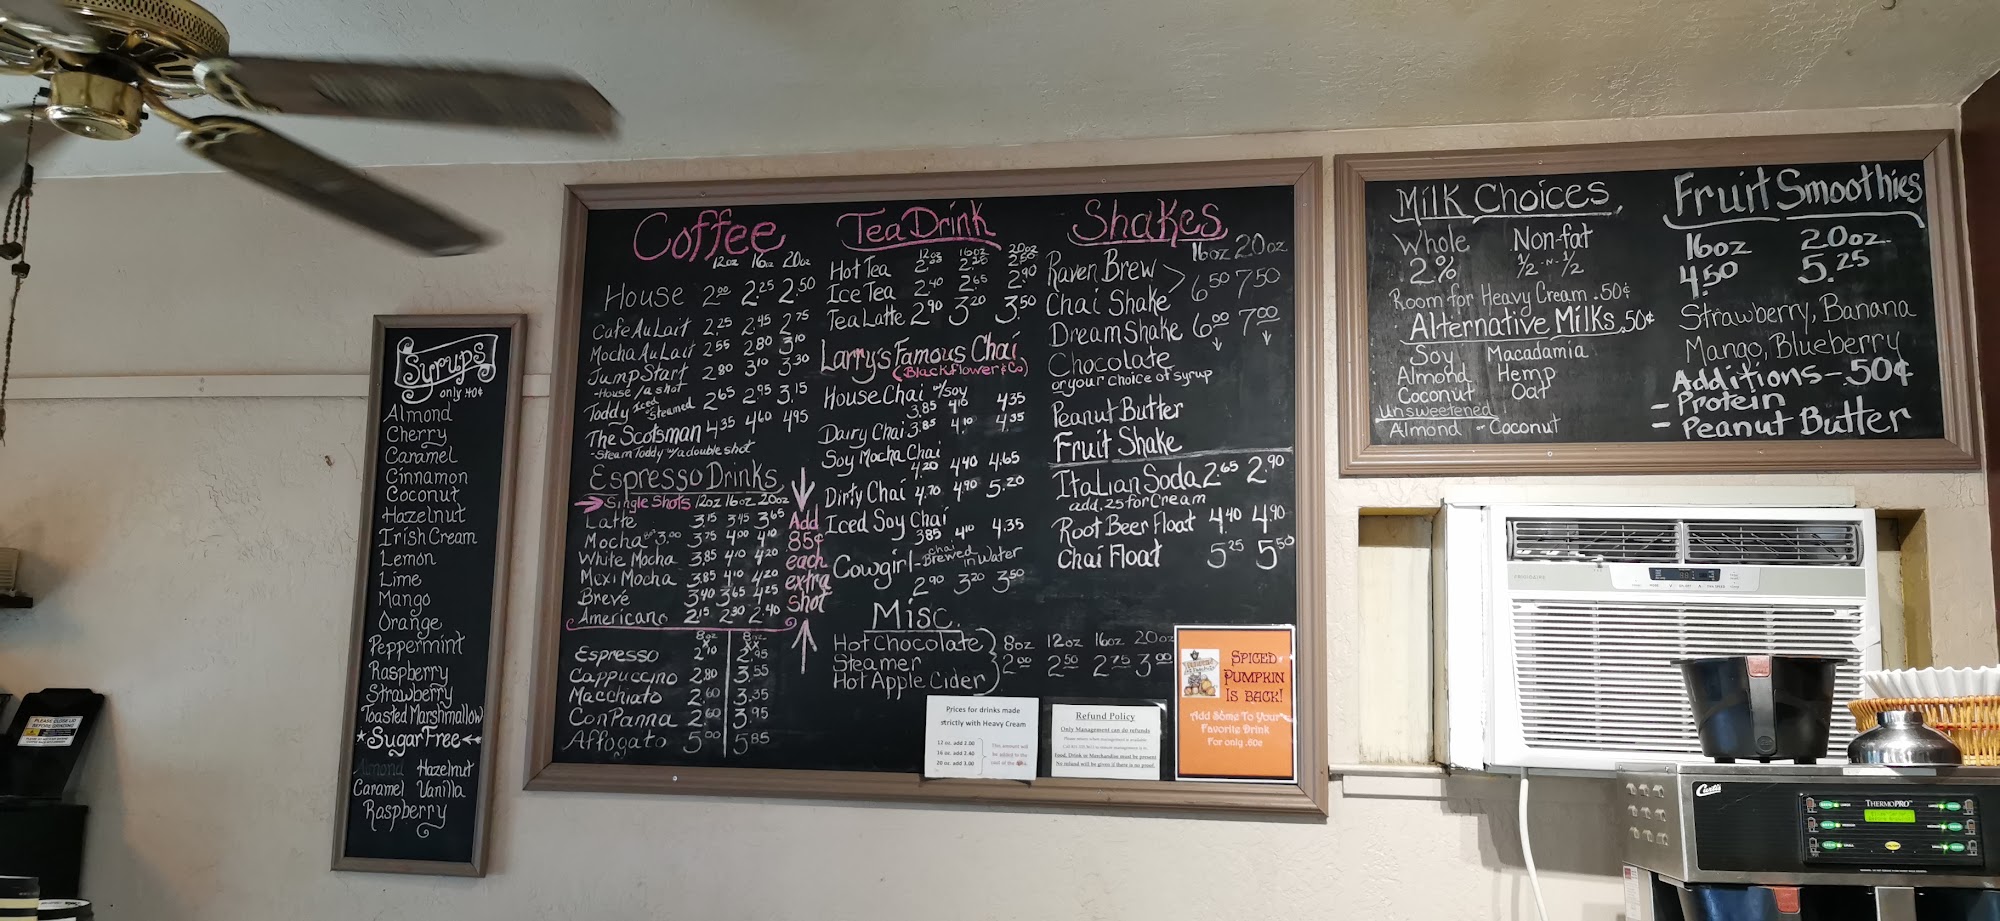 Syrups
only .40¢
Almond
Cherry
Caramel
Cinnamon
Coconut
Hazelnut
Irish Cream
Lemon
Lime
Mango
Orange
Peppermint
Raspberry
Strawberry
Toasted Marshmallow
*Sugar Free
Almond Hazelnut
Caramel Vanilla
Raspberry
Coffee
12oz 16oz 20oz
House 2.00 2.25 2.50
Cafe Au Lait 2.25 2.45 2.75
Mocha Au Lait 2.55 2.80 3.10
Jump Start 2.80 3.10 3.30
-House w/a shot
Toddy Iced or Steamed 2.65 2.95 3.15
The Scotsman 4.35 4.60 4.95
-Steam Toddy w/a double shot
Espresso Drinks
Single Shots 12oz 16oz 20oz
Latte 3.15 3.45 3.65
Mocha 8oz 3.00 3.75 4.00 4.10
White Mocha 3.85 4.10 4.20
Mexi Mocha 3.85 4.10 4.20
Brevé 3.40 3.65 4.25
Americano 2.15 2.30 2.40
Add
85¢
each
extra
shot
8oz 8oz
X XX
Espresso 2.10 2.95
Cappuccino 2.80 3.55
Macchiato 2.60 3.35
Con Panna 2.60 3.95
Affogato 5.00 5.85
Tea Drink
12oz 16oz 20oz
Hot Tea 2.00 2.25 2.50
Ice Tea 2.40 2.65 2.90
Tea Latte 2.90 3.20 3.50
Larry's Famous Chai
(Blackflower & Co)
House Chai w/soy
3.85 4.10 4.35
Dairy Chai 3.85 4.10 4.35
Soy Mocha Chai
4.20 4.40 4.65
Dirty Chai 4.70 4.90 5.20
Iced Soy Chai
3.85 4.10 4.35
Cowgirl - chai Brewed in Water
2.90 3.20 3.50
Misc.
8oz 12oz 16oz 20oz
Hot Chocolate
Steamer 2.00 2.50 2.75 3.00
Hot Apple Cider
Shakes
16oz 20oz
Raven Brew
Chai Shake 6.50 7.50
Dream Shake 6.00 7.00
Chocolate
or your choice of syrup
Peanut Butter
Fruit Shake
Italian Soda 2.65 2.90
add .25 for Cream
Root Beer Float 4.40 4.90
Chai Float 5.25 5.50
Prices for drinks made
strictly with Heavy Cream
12 oz. add 2.00
16 oz. add 2.40
20 oz. add 3.00
This amount will
be added to the
cost of the drink
Refund Policy
Only Management can do refunds
Food, Drink or Merchandise must be present
No refund will be given if there is no proof.
Spiced
Pumpkin
Is Back!
Add Some To Your
Favorite Drink
For only .60¢
Milk Choices
Whole Non-fat
2% ½ -n- ½
Room for Heavy Cream .50¢
Alternative Milks .50¢
Soy Macadamia
Almond Hemp
Coconut Oat
Unsweetened
Almond - Coconut
Fruit Smoothies
16oz 20oz
4.50 5.25
Strawberry, Banana
Mango, Blueberry
Additions - .50¢
- Protein
- Peanut Butter
FRIGIDAIRE
Curtis
THERMOPRO
PLEASE CLOSE LID
BEFORE GRINDING